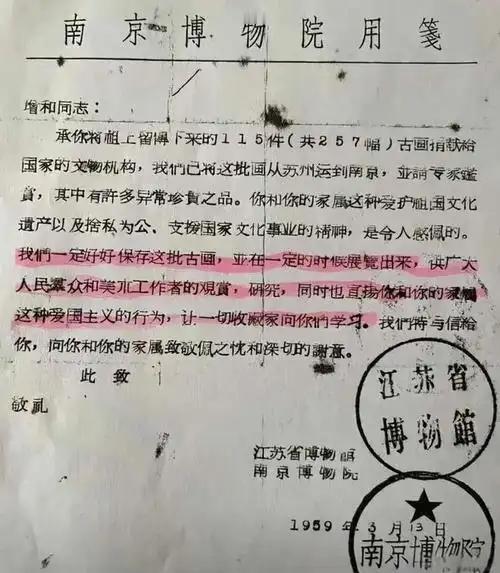 南京博物院用箋
增和同志：
承你将祖上留传下来的115件（共257幅）古画捐献給
国家的文物机构，我們已将这批画从苏州运到南京，並請专家鑑
賞，其中有許多异常珍貴之品。你和你的家属这种爱护祖国文化
遺产以及捨私为公、支援国家文化事业的精神，是令人感佩的。
我們一定好好保存这批古画，並在一定的时候展覽出来，供广大
人民羣众和美朮工作者的观賞，研究，同时也宣揚你和你的家属
这种爱国主义的行为，让一切收藏家向你們学习。我們特与信給
你，向你和你的家属致敬佩之忱和深切的謝意。
此致
敬礼
江苏省博物館
南京博物院
1959年3月13日
江苏省
博物館
南京博物院